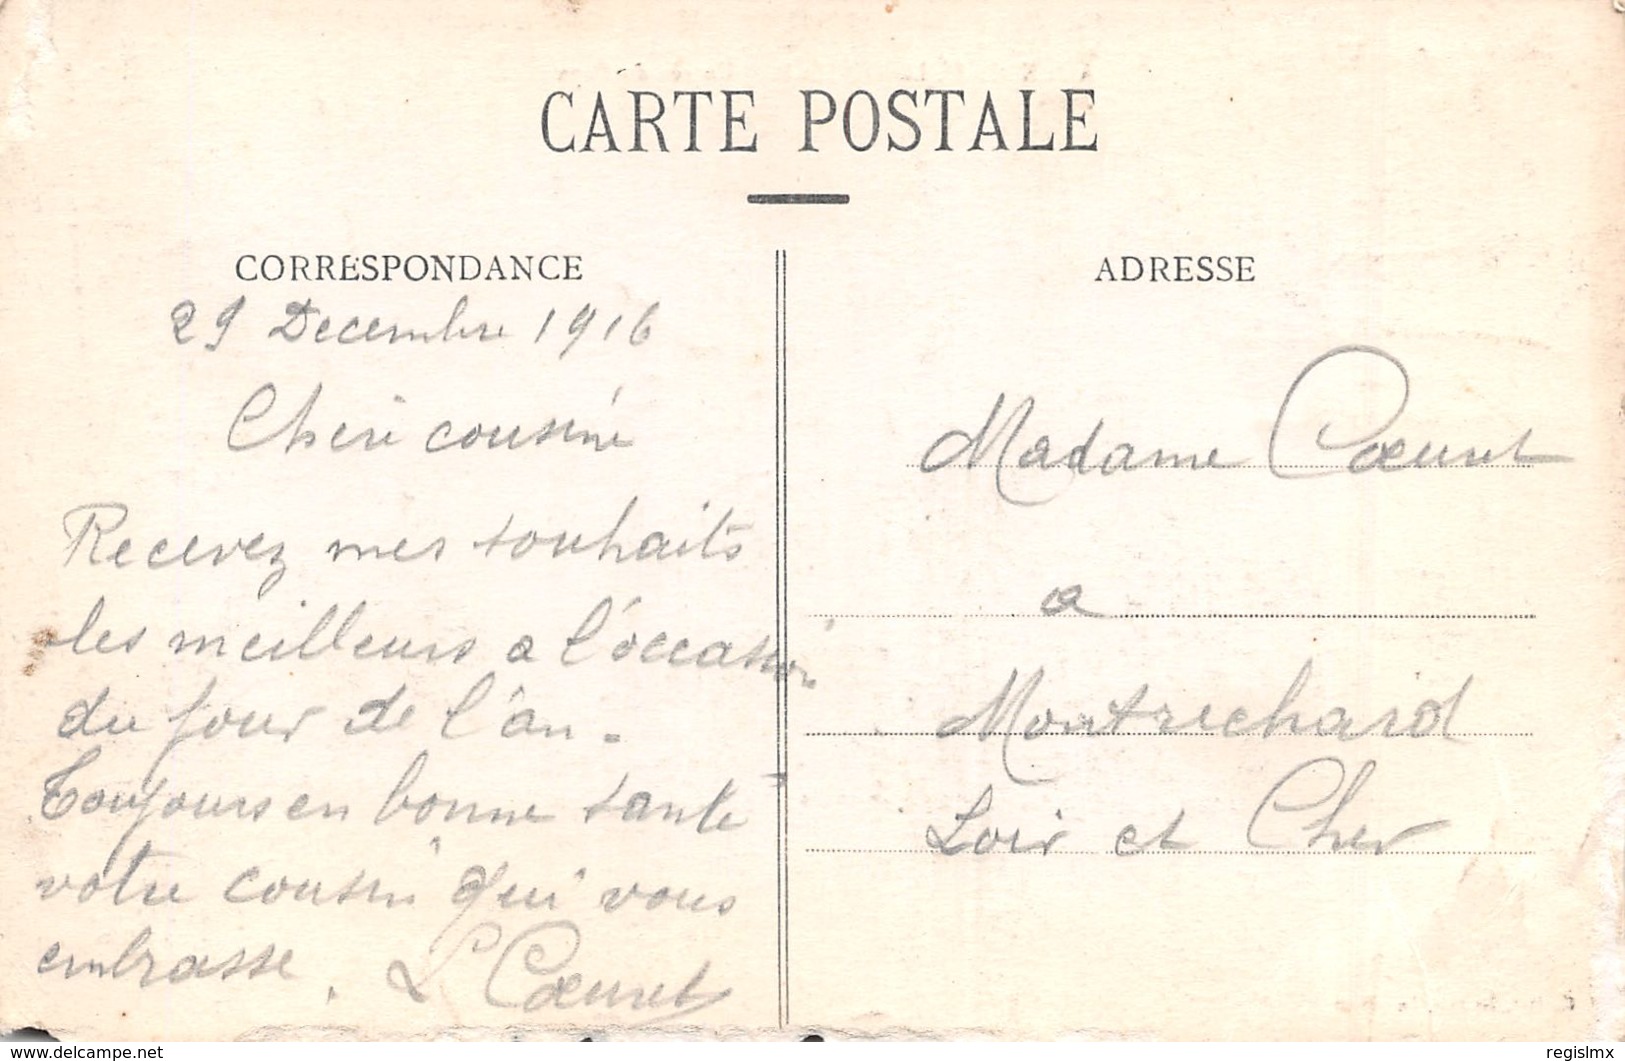 CARTE POSTALE
CORRESPONDANCE
29 Decembre 1916
Cheri cousine
Recevez mes souhaits
les meilleurs a l'occasion
du jour de l'an.
Toujours en bonne santé
votre cousin qui vous
embrasse. L Cœuret
ADRESSE
Madame Cœuret
a
Montrichard
Loir et Cher
www.delcampe.net
regislmx